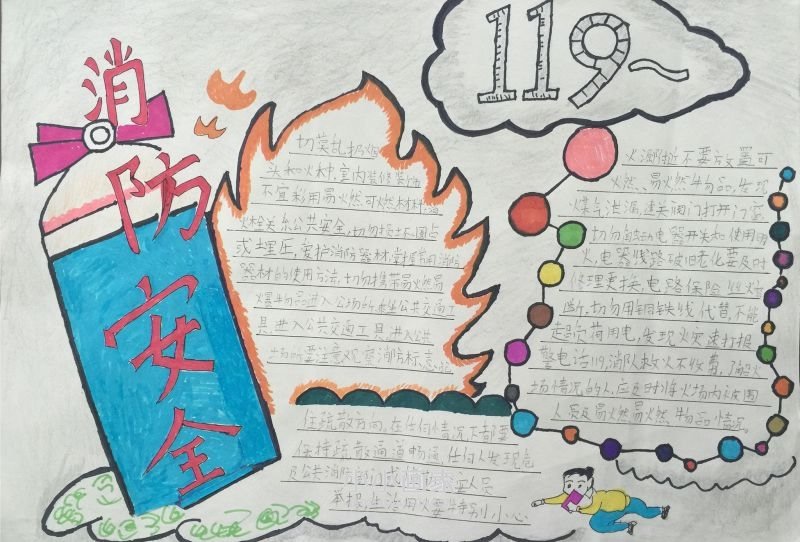 消防安全
119~
切莫乱扔烟
头和火种,室内装修装饰
不宜采用易燃可燃材料,消
火栓关系公共安全,切勿损坏圈占
或埋压,爱护消防器材,掌握常用消防
器材的使用方法,切勿携带易燃易
爆物品进入公场所,乘坐公共交通工
具,进入公共交通工具,进入公共
场所要注意观察消防标志,记
住疏散方向,在任何情况下都要
保持疏散通道畅通,任何人发现危
及公共消防
举报,生活用火要特别小心
火源附近不要放置可
燃、易燃物品,发现
煤气泄漏,速关阀门打开门窗
切勿触动电器开关和使用明
火,电器线路破旧老化要及时
修理更换,电路保险丝熔
断,切勿用铜铁线代替,不能
超负荷用电,发现火灾速打报
警电话119,消队救火不收费,了解火
场情况的人,应及时将火场内被围
人员及易燃易燃物品情况